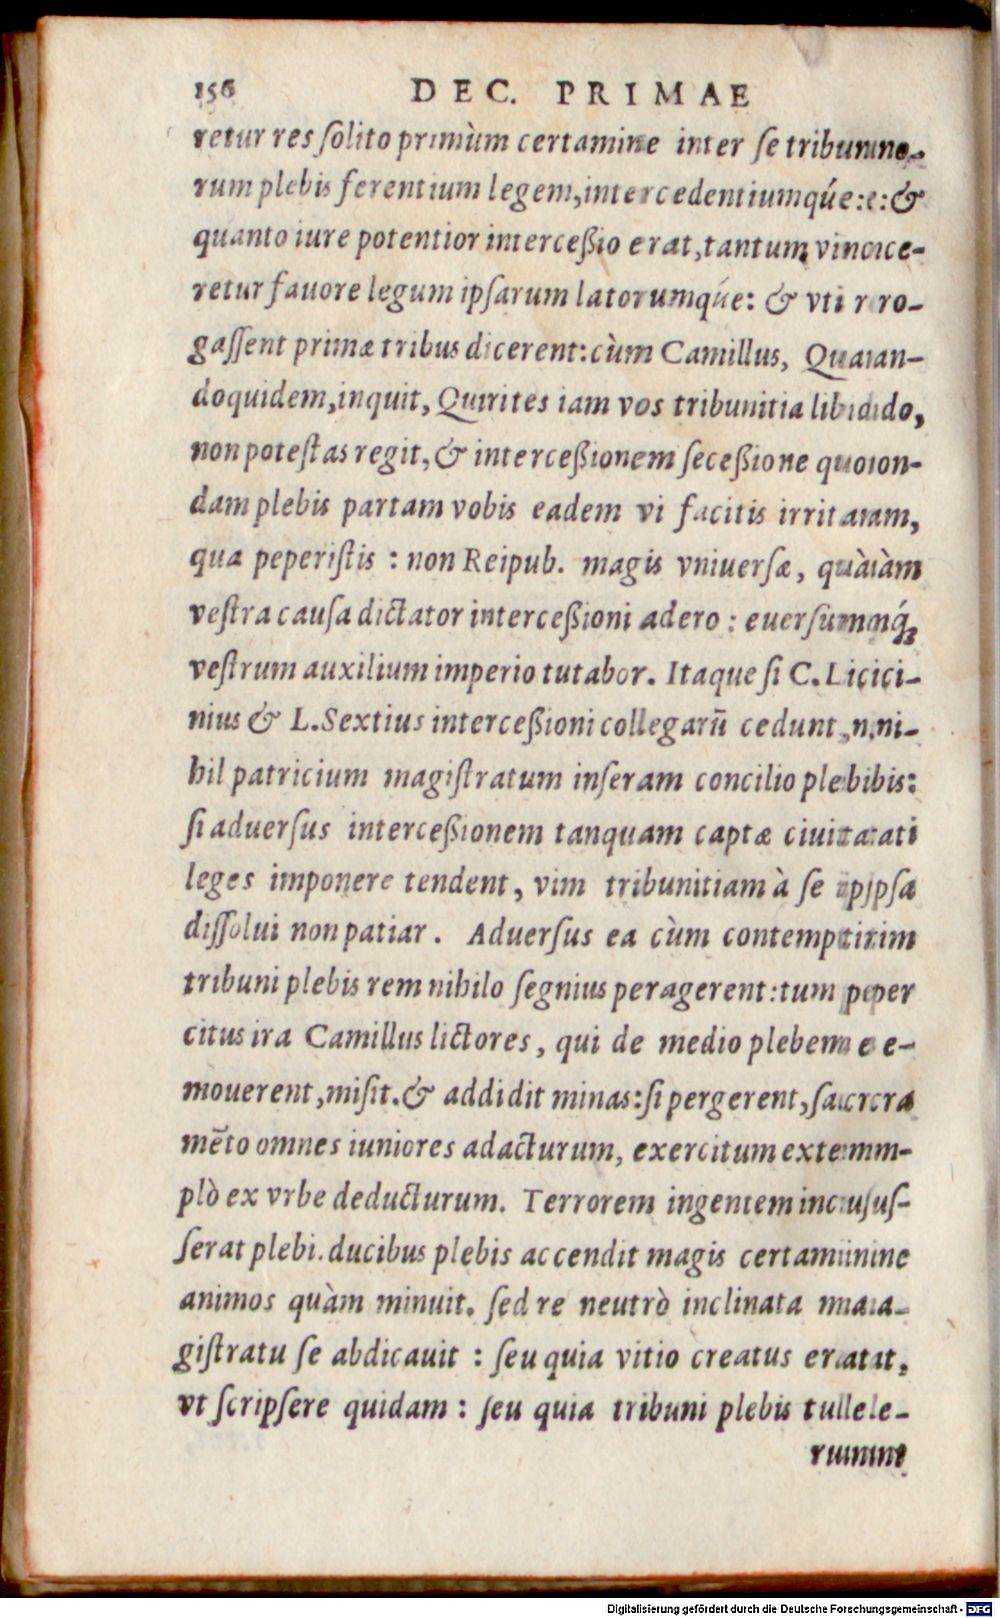 156 DEC. PRIMAE
retur res ſolito primùm certamine inter ſe tribuno-
rum plebis ferentium legem,intercedentiumqúe:&
quanto iure potentior interceßio erat,tantum vince-
retur fauore legum ipſarum latorumqúe: & vti ro-
gaſſent primæ tribus dicerent:cùm Camillus, Quan-
doquidem,inquit, Quirites iam vos tribunitia libido,
non poteſtas regit,& interceßionem ſeceßione quon-
dam plebis partam vobis eadem vi facitis irritam,
qua peperiſtis : non Reipub. magis vniuerſæ, quàm
veſtra cauſa dictator interceßioni adero : euerſumq́;
veſtrum auxilium imperio tutabor. Itaque ſi C. Lici-
nius & L.Sextius interceßioni collegarū cedunt, ni-
hil patricium magiſtratum inſeram concilio plebis:
ſi aduerſus interceßionem tanquam captæ ciuitati
leges imponere tendent, vim tribunitiam à ſe ipſa
diſſolui non patiar. Aduerſus ea cùm contemptim
tribuni plebis rem nihilo ſegnius peragerent:tum per
citus ira Camillus lictores, qui de medio plebem e-
mouerent,miſit.& addidit minas:ſi pergerent,ſacra
mēto omnes iuniores adacturum, exercitum extem-
plò ex vrbe deducturum. Terrorem ingentem incuſ-
ſerat plebi.ducibus plebis accendit magis certamine
animos quàm minuit. ſed re neutrò inclinata ma-
giſtratu ſe abdicauit : ſeu quia vitio creatus erat,
vt ſcripſere quidam : ſeu quia tribuni plebis tule-
runt
Digitalisierung gefördert durch die Deutsche Forschungsgemeinschaft - DFG